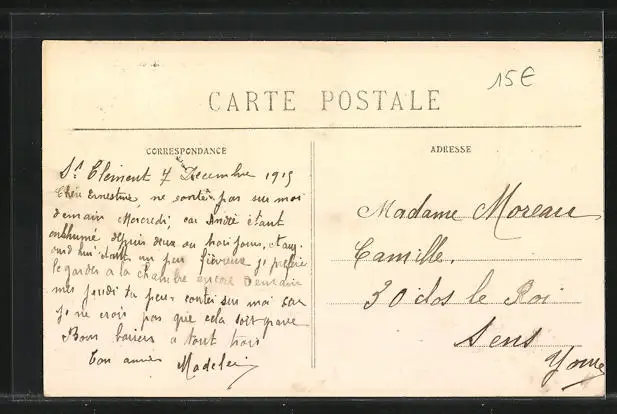 15€
CARTE POSTALE
CORRESPONDANCE
ADRESSE
St Clément 7 Décembre 1915
Chère Ernestine, ne conte pas sur moi
demain Mercredi, car André étant
enrhumé depuis deux ou trois jours, et auj-
ourd'hui étant un peu fiévreux je préfère
le garder a la chambre encore demain
mes jeudi tu peux conter sur moi car
je ne crois pas que cela soit grave
Bons baisers a tout trois
Ton amie Madelei
Madame Moreau
Camille.
30 clos le Roi
Sens
Yonne